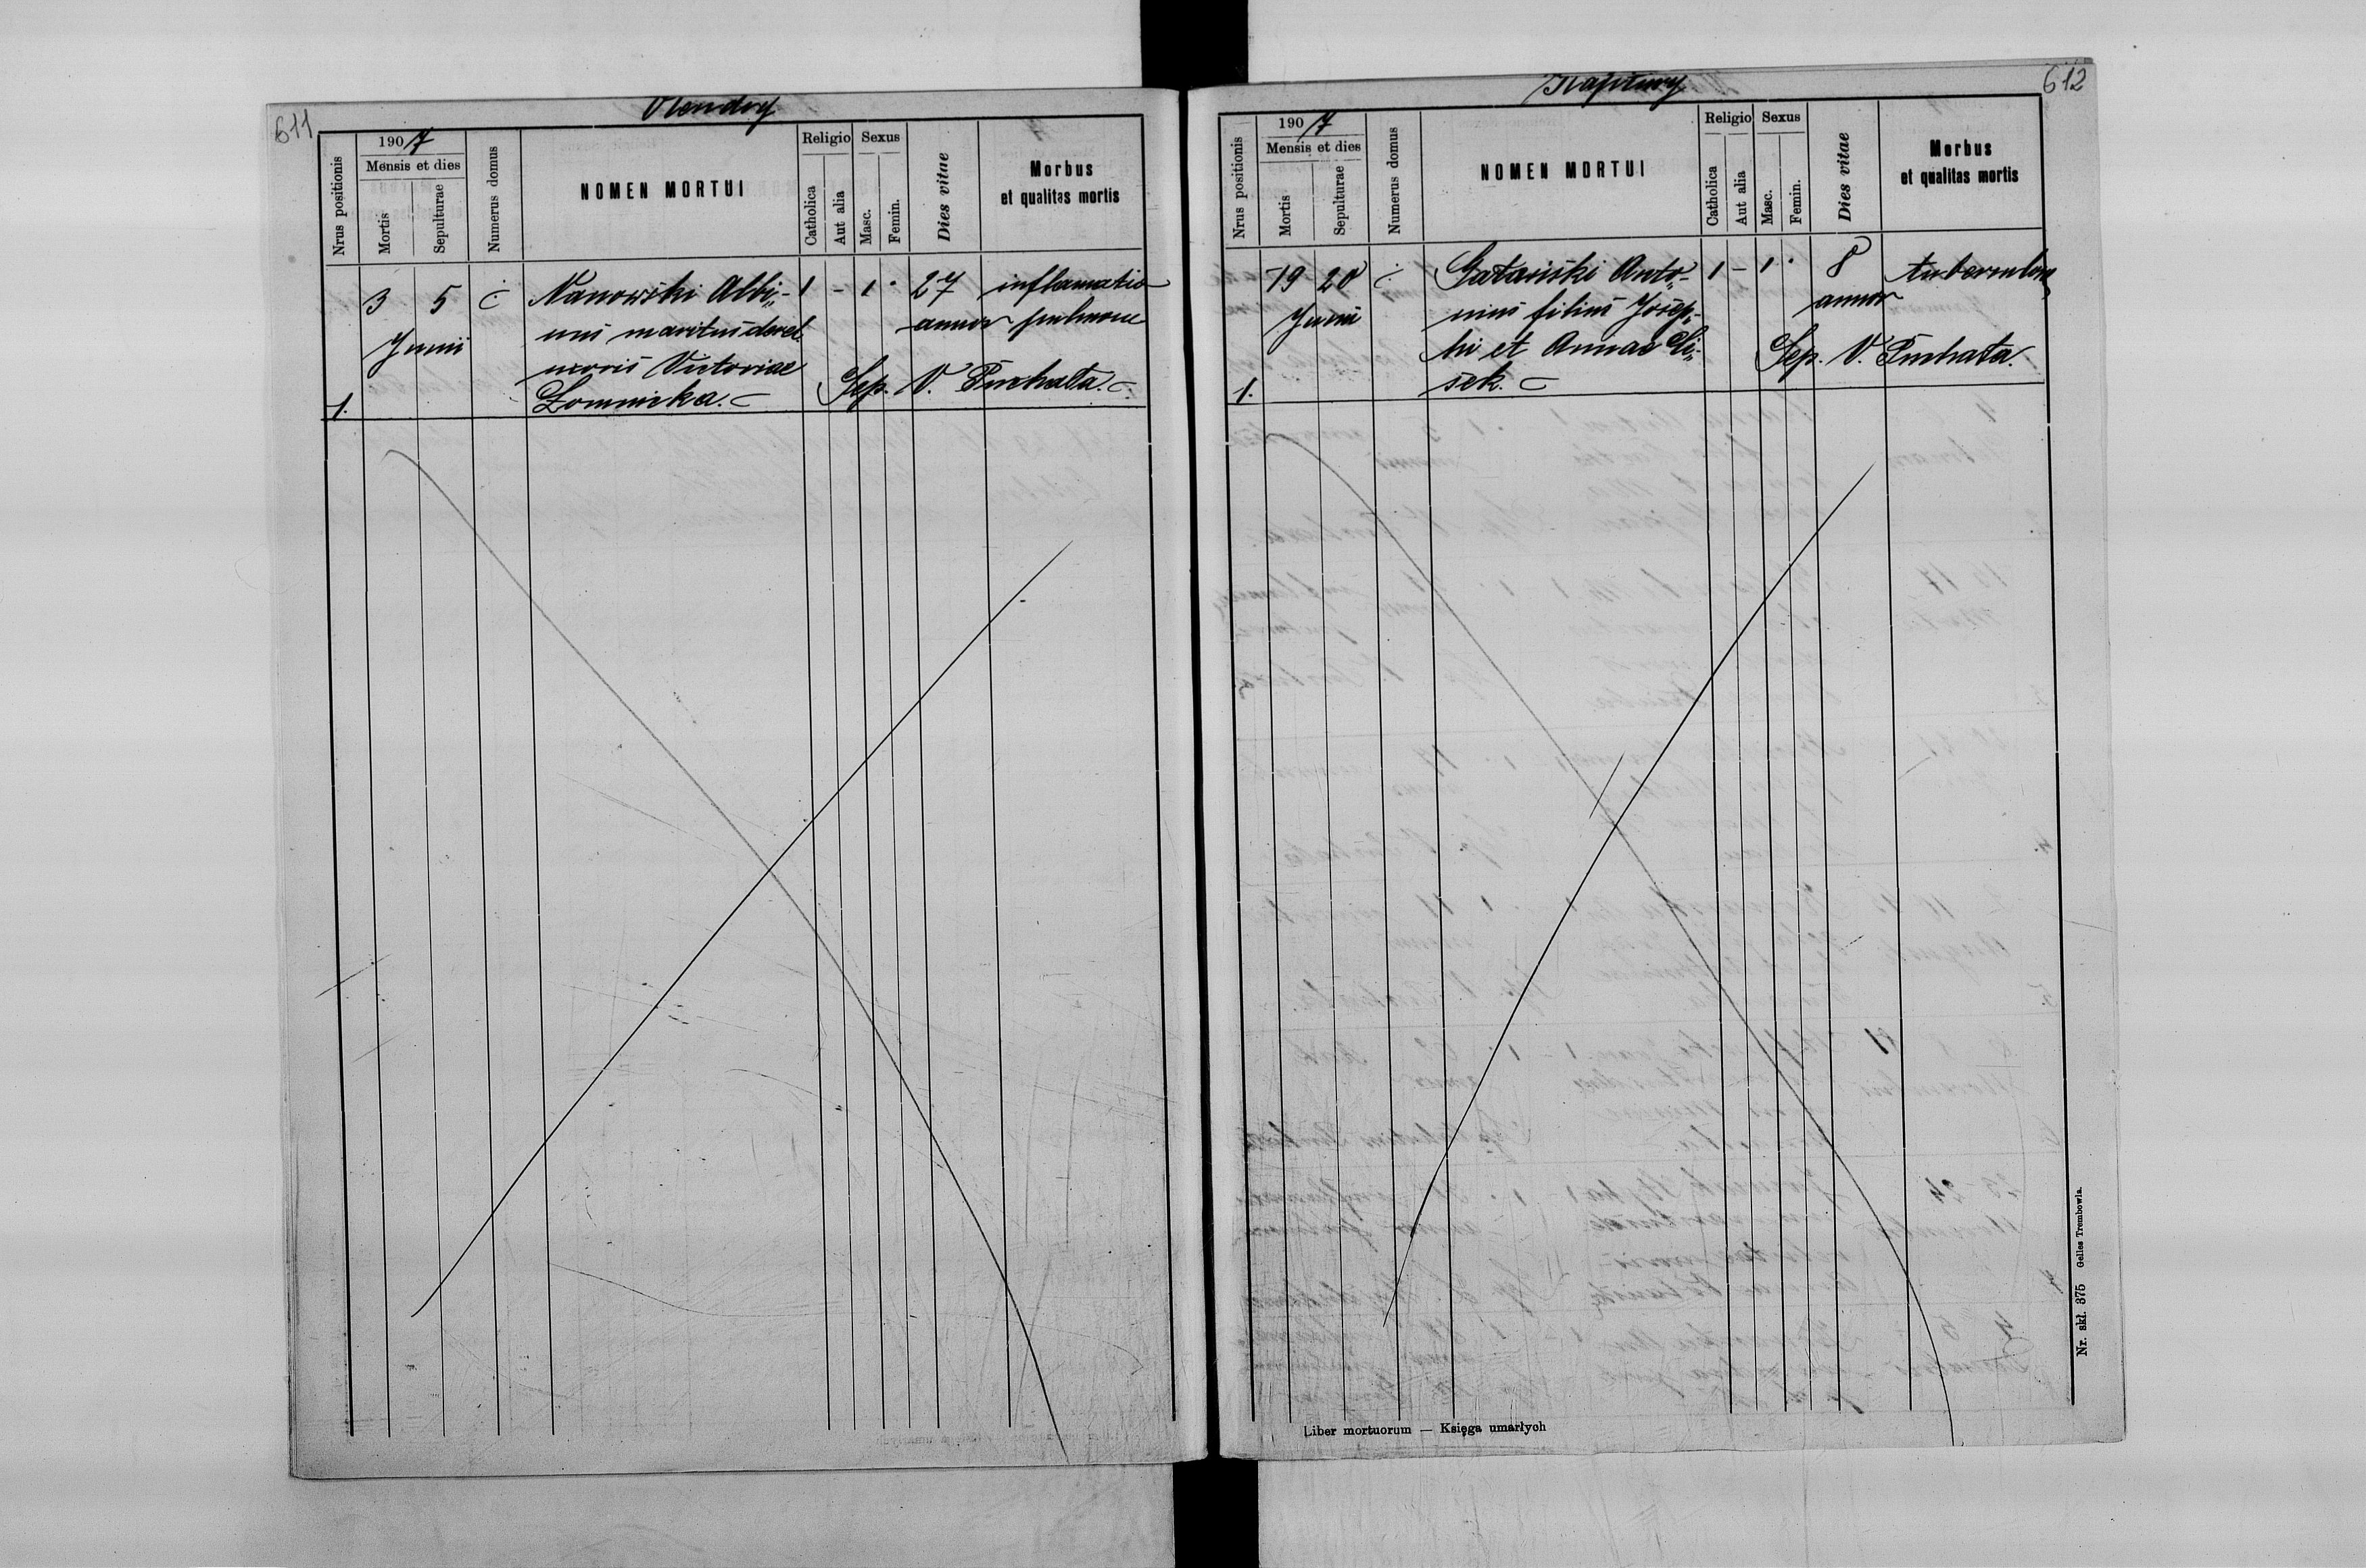 611
Olendry
Nrus positionis
1907
Mensis et dies
Mortis
Sepulturae
Numerus domus
NOMEN MORTUI
Religio
Catholica
Aut alia
Sexus
Masc.
Femin.
Dies vitae
Morbus
et qualitas mortis
3 5 Nanowski Albi- 1 - 1 · 27 inflamatio
Junii nus maritus derel. annor pulmone
uxoris Victoriae
Sep. V. Puchała.
1. Łomnicka.
612
Kaptury
Nrus positionis
1907
Mensis et dies
Mortis
Sepulturae
Numerus domus
NOMEN MORTUI
Religio
Catholica
Aut alia
Sexus
Masc.
Femin.
Dies vitae
Morbus
et qualitas mortis
19 20 Anto- 1 - 1 · 8
Junii nius filius Josep- annor
hi et Annae Li- Sep. V. Puchała.
1. sek.
Liber mortuorum — Księga umarłych
Nr. skł. 375 Gelles Trembowla.